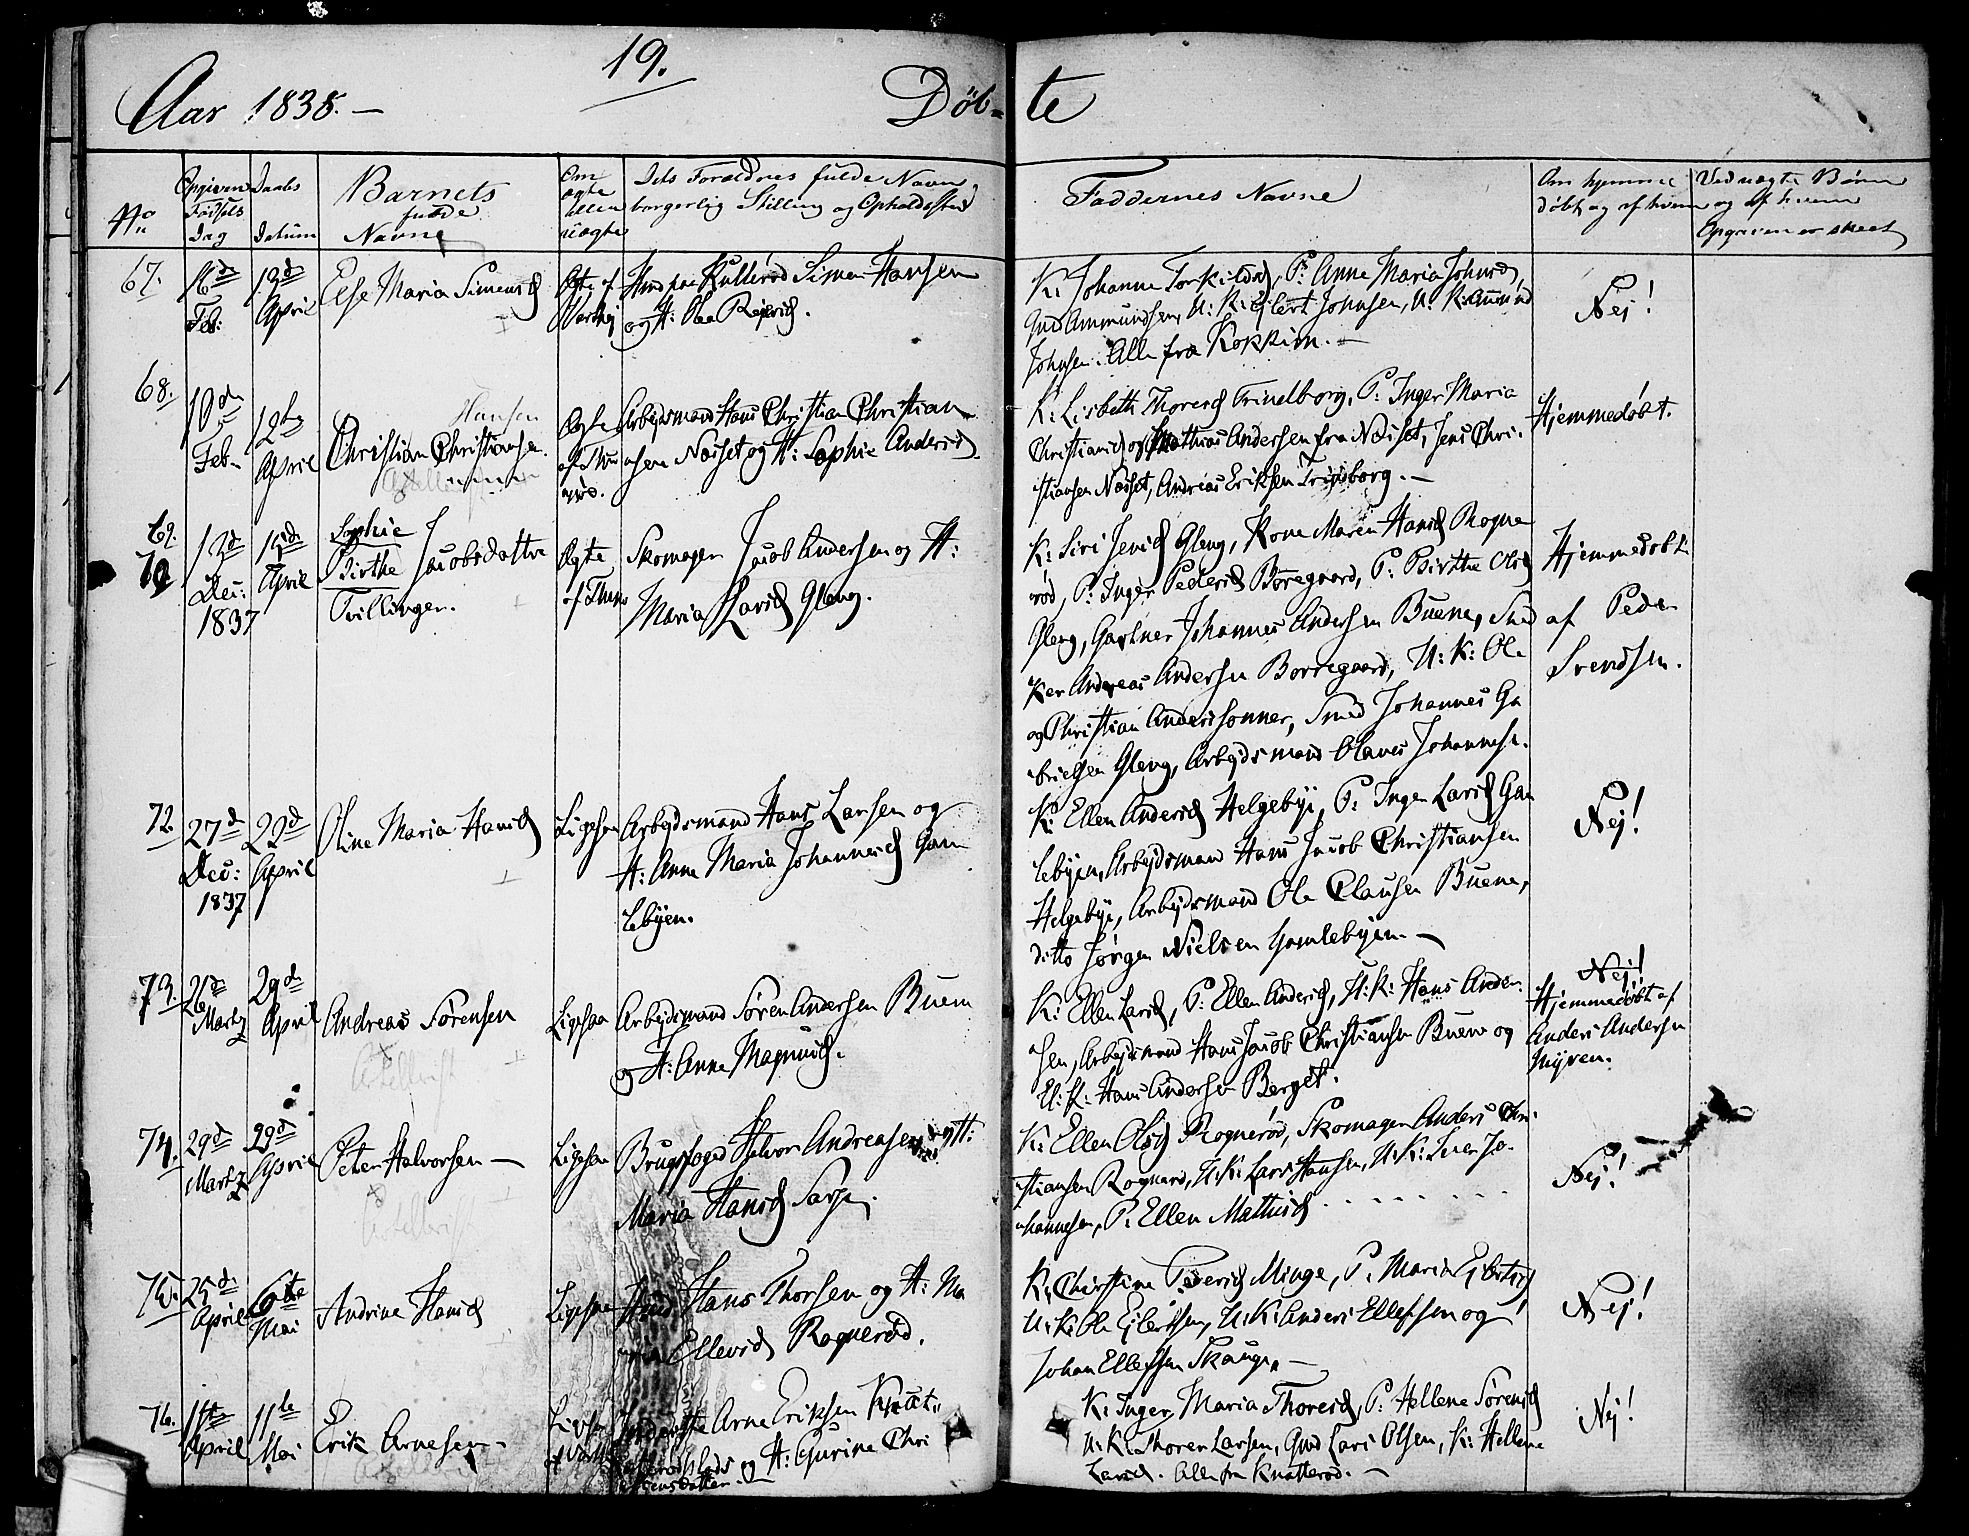 19.
Aar 1838. — Døb- te
No
Opgiven Fødsels Dag
Daabs Datum
Barnets fulde Navne
Om ægte eller uægte
Dets Forældres fulde Navn borgerlig Stilling og Opholdssted
Faddernes Navne
Om hjemmedøbt og af hvem
Ved uægte Børn og af hvem Opgiven er skeet
67.
16d
Feb:
April
Else Maria Simensd
Ægte af
Simen Hansen
og H:
K: Johanne Torkildsd, P: Anne Maria Johnsd,
Ammundsen, U: K: Ejlert Johnsen, U: K: Amund
Johnsen. Alle fra Kokkim. —
Nej!
68.
10de
Feb.
April
Hansen
Christian Christiansen.
Ægte
Arbejdsmand Hans Christian Christian-
sen Næsset og H: Sophie Andersd
K: Lisbeth Thoresd Trineborg, P: Inger Maria
Christiansd og Mathias Andersen fra Næsset, Jens Chri-
stiansen Næsset, Andreas Eriksen Trineborg. —
Hjemmedøbt.
69.
70
13d
Dec:
1837
15d
April
Sophie
Birthe Jacobsdatter
Tvillinger.
Ægte
Skomager Jacob Andersen og H:
Maria Larsd Gleng.
K: Siri Jensd Gleng, Kone Maren Hansd Rogne
rød, P: Inger Pedersd Borregaard, P: Birthe Olsd
Gleng, Gartner Johannes Andersen Buene, Sned
ker Andreas Andersen Borregaard, U: K: Ole
og Christian Anderssønner, Smed Johannes Ga
brielsen Gleng, Arbejdsmand Olaves Johannesen.
Hjemmedøbt
af Peder
Svendsen.
72
27d
Dec:
1837
22d
April
Oline Maria Hansd
Ligesaa
Arbejdsmand Hans Larsen og
H: Anne Maria Johannesd Gam
lebyen.
K: Ellen Andersd Helgebye, P: Inger Larsd Gam
lebyen, Arbejdsmand Hans Jacob Christiansen
Helgebye, Arbejdsmand Ole Clausen Buene,
ditto Jørgen Nielsen Gamlebyen. —
Nej!
73.
26d
Martz
29d
April
Andreas Sørensen
Ligesaa
Arbejdsmand Søren Andersen Buene
og H: Anne Magnusd.
K: Ellen Larsd, P: Ellen Andersd, U: K: Hans Ander-
sen, Arbejdsmand Hans Jacob Christiansen Buene og
U: K: Hans Andersen Berget.
Nej!
Hjemmedøbt af
Anders Andersen
74.
29d
Martz
29d
April
Peter Halvorsen —
Ligesaa
Brugsfoged Halvor Andreasen og H:
Maria Hansd
K: Ellen Olsd Rognerød, Skomager Anders Chri-
stiansen Rognerød, U: K: Lars Hansen, U: K: Iver Jo-
hannesen, P: Ellen Mathisd.
Nej!
75.
25d
April
6te
Mai
Andrine Hansd
Ligesaa
Hans Thorsen og H: Ma
ria Ellevsd Rognerød.
K: Christine Pedersd Minge, P: Maria
U: K: Ole Ejlertsen, U: K: Anders Ellefsen og
Johan Ellefsen Skauge. —
Nej!
76.
1st
April
11te
Mai
Erik Arnesen
Ligesaa
Arne Eriksen Knat-
og H: Gurine Chri
stensdatter. —
K: Inger Maria Thoresd, P: Hellene Sørensd
U: K: Thorer Larsen, Gmd Lars Olsen, K: Hellene
Larsd. Alle fra Knatterød. —
Nej!